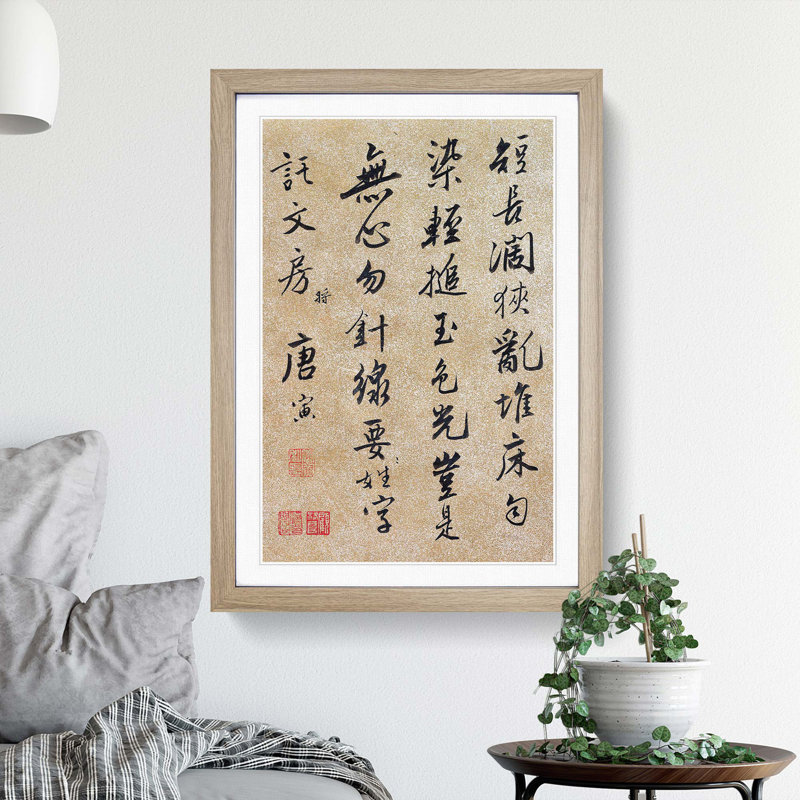 短長濶狹亂堆床匀
染輕搥玉色光豈是
無心勿針線要姓字
託文房 將
唐寅